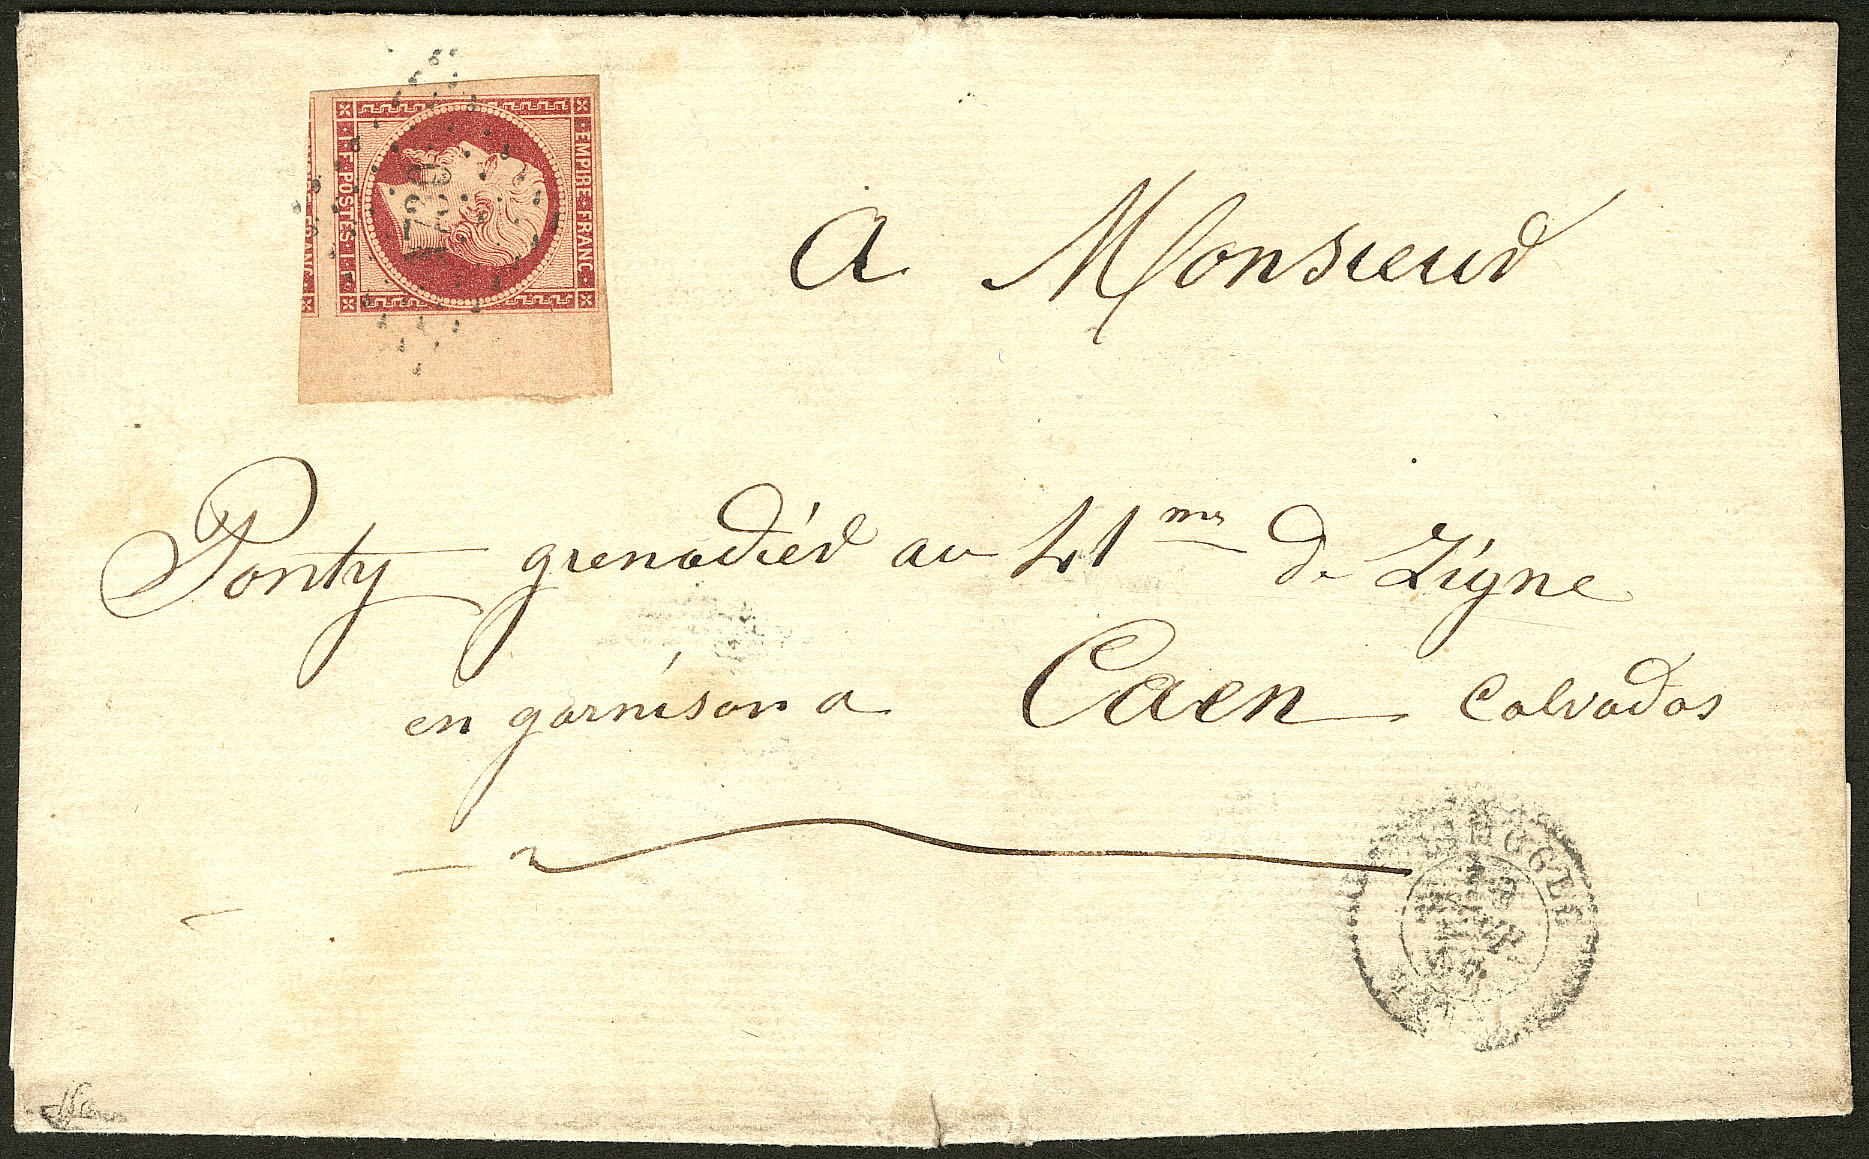 EMPIRE · FRANC ·
1 F · POSTES · 1 F
· FRANC ·
A Monsieur
Ponty grenadiér au 41me de Ligne
en garnison a Caen Calvados
LIMOGES